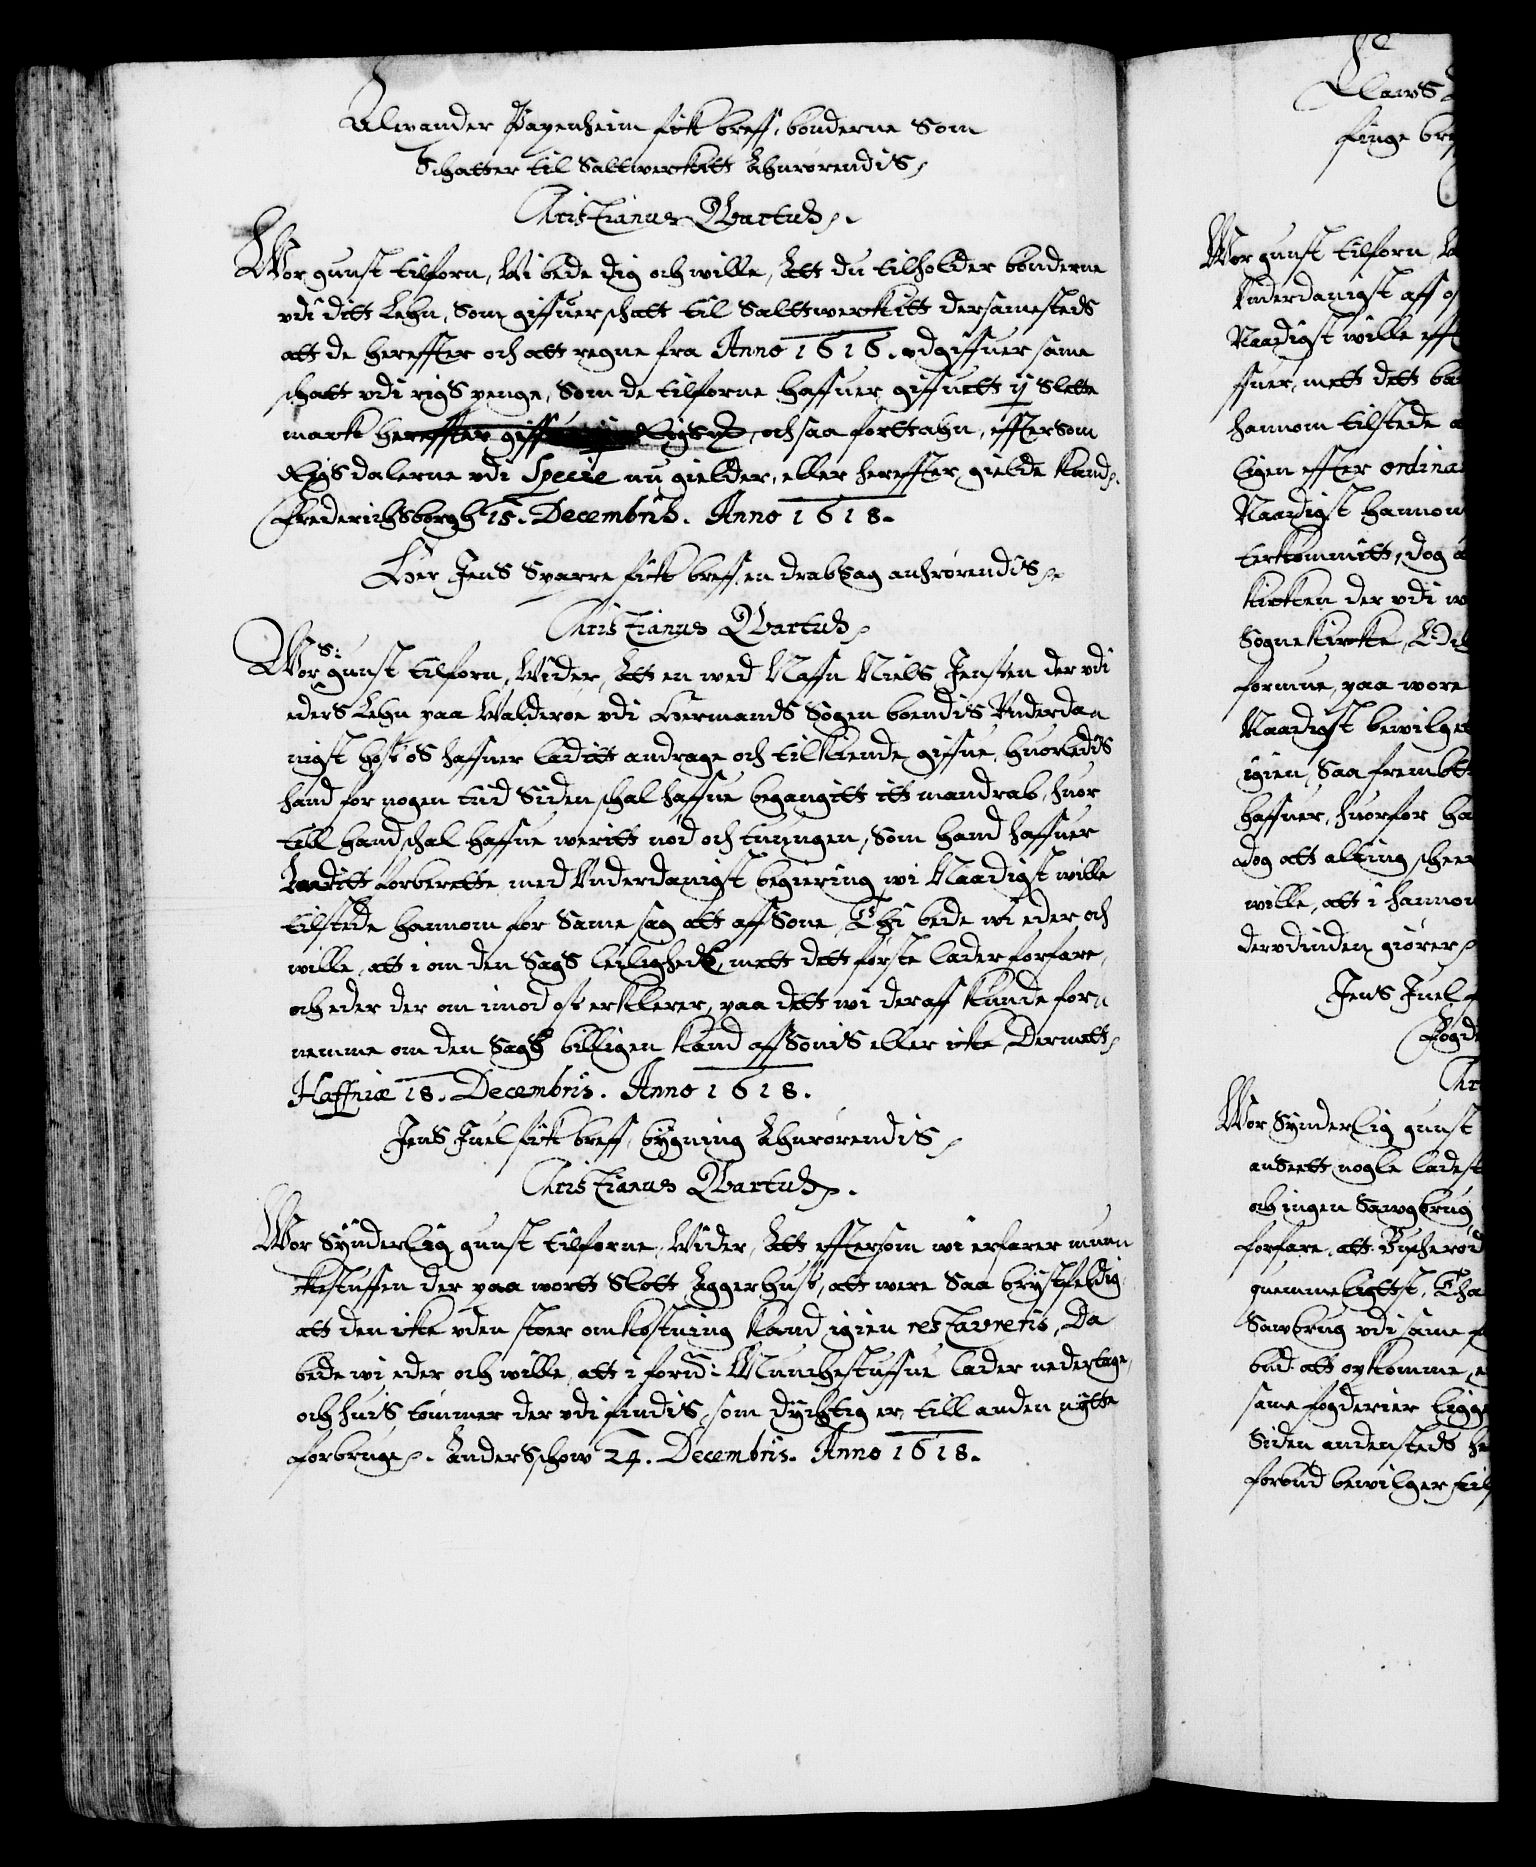 Alexander Papenheim fik breff, bønderne Som
Schatter til Saltwerkitt Ahnrørendis
Christianus Qvartus
Wor gunst tilforn, Wi bede dig och wille, Att du tilholder bønderne
vdi ditt Lehn, Som giffuer schatt til Salttwerkitt dersamesteds
att de hereffter och att regne fra Anno 1616. vdgiffuer same
schatt vdi rigs penge, Som de tilforne haffuer giffuett ij Slette
mark hereffter giff Rigs, och saa forttahn, efftersom
Rigs dalerne vdi Specie nu gielder, eller hereffter gielde kand.
Frederichsborgh 15. Decembris. Anno 1618.
Her Jens Sparre fick breff en drabsag anhrørendis
Christianus Qvartus
Wor S: gunst tilforn, Wider, Att en wed Naffn Niels Jensten der vdi
eders Lehn paa Walderøe vdi Hermands Sogen boendis Vnderda
nigst host os haffuer laditt andrage och tilkiende giffue, huorledis
hand for nogen tiid Siden schal haffue begangitt itt mandrab, huor
till hand schal haffue weritt nød och tuungen, Som hand haffuer
Laditt forberette med Vnderdanigst begiering wi Naadigst wille
tilstede hannom for Same sag att aff Sone, Thi bede wi eder och
wille, att i om den Sags leilighed, mett dett første lader forfare,
och eder der om imod os erklerer, paa dett wi deraff kunde for
nemme om den Sag billigen kand aff Sonis eller icke Dermett
Haffniæ 18. Decembris. Anno 1618.
Jens Juel fik breff, bygning Ahnrørendis
Christianus Qvartus.
Wor Synderlig gunst tilforne, Wider, Att efftersom wi erfarer muen
kestuffen der paa wortt Slott Aggerhus, att were Saa brystfeldig,
att den icke vden stoer omkostning kand igien restavreris, Da
bede wi eder och wille, att i fornd: Munchestuffue lader nedertage,
och huis tømmer der vdi findis, som dychtig er, till anden nytte
forbruge. Anderschow 24. Decembris. Anno 1618.
Claws
finge
Wor gunst tilforn
Vnderdanigst aff
Naadigst wille
ffuer, mett dett
hannom tilstede
ligen effter
Naadigst
dog
kirken der vdi
Sognekirke
formue, paa wore
Naadigst
igien, Saa
haffuer, huorfor
dog att alting
wille, att i
dervdinden giører
Jens Juel
Wor Synderlig gunst
ansett nogle
och ingen Sawgbrug
forfare, att
Sawbrug vdi same
bud att opkomme
same fogderier
Siden andensteds
forbud bewilger